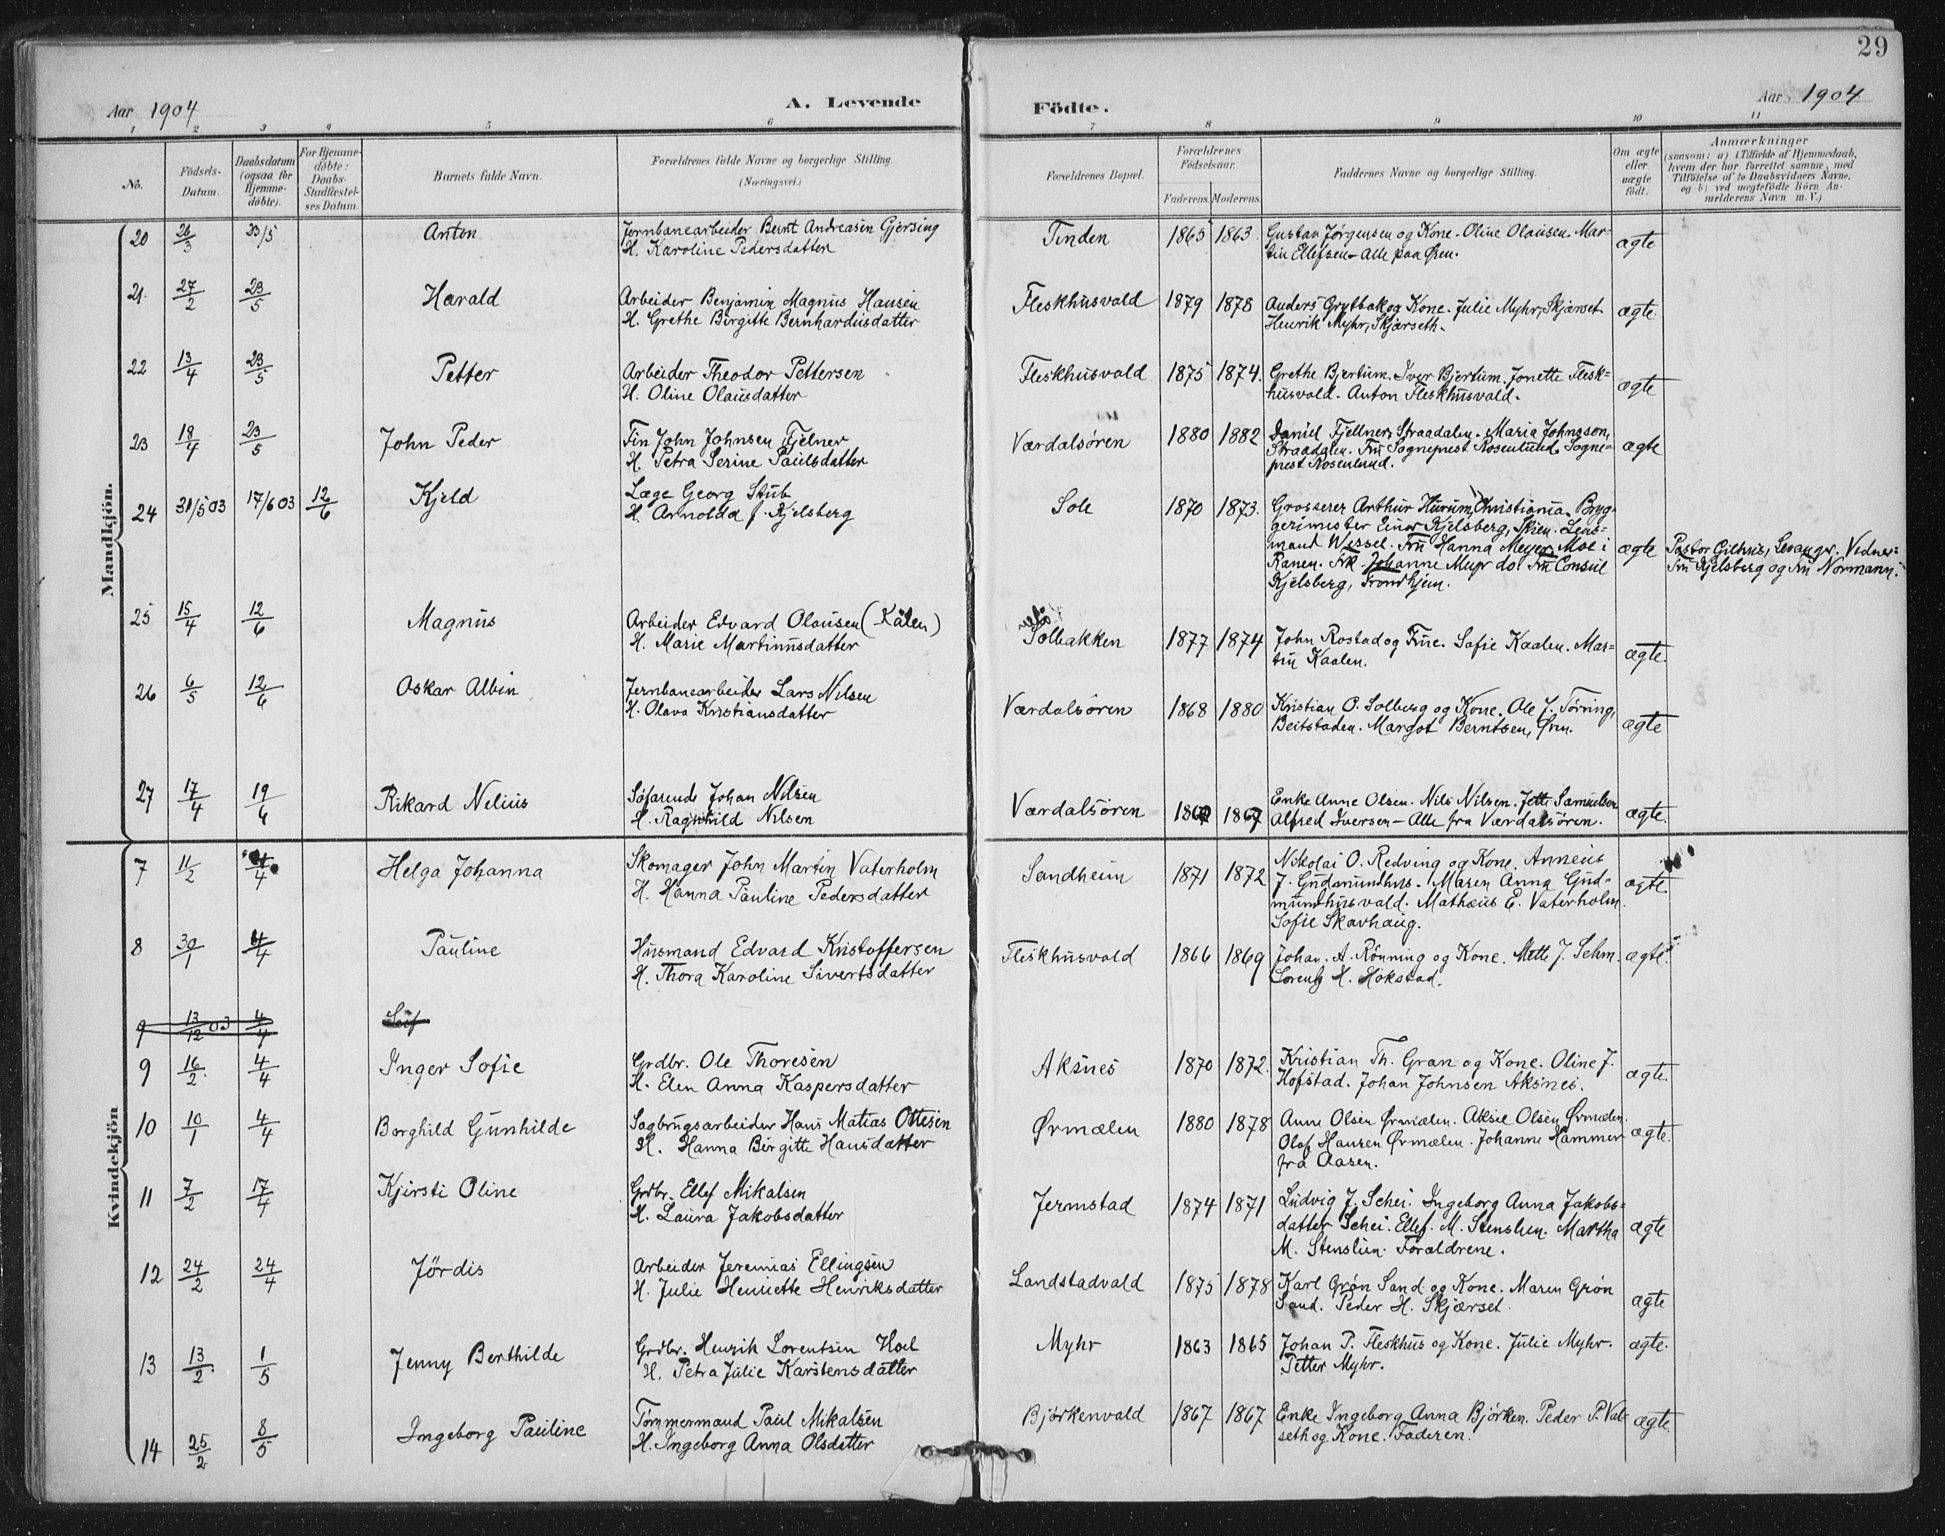 29
Aar 1904
A. Levende
Födte.
Aar 1904
1 2 3 4 5 6 7 8 9 10 11
No.
Födsels-
Datum.
Daabsdatum
(ogsaa for
Hjemme-
döbte).
For Hjemme-
döbte:
Daabs-
Stadfæstel-
ses Datum.
Barnets fulde Navn.
Forældrenes fulde Navne og borgerlige Stilling.
(Næringsvei.)
Forældrenes Bopæl.
Forældrenes
Födselsaar.
Faderens. Moderens.
Faddernes Navne og borgerlige Stilling.
Om ægte
eller
uægte
födt.
Anmærkninger
(saasom: a) i Tilfælde af Hjemmedaab,
hvem der har forrettet samme, med
Tilföielse af to Daabsvidners Navne,
og b) ved uægtefödte Börn An-
melderens Navn m. V.)
Mandkjön.
20 26/3 23/5 Anton Jernbanearbeider Bernt Andreasen Gjersing
H. Karoline Pedersdatter
Tinden 1865 1863 Gustav Jørgensen og Kone. Oline Olausen. Mar-
tin Ellefsen - Alle paa Øren. ægte
21. 27/2 23/5 Harald Arbeider Benjamin Magnus Hansen
H. Grethe Birgitte Bernhardusdatter
Fleskhusvald 1879 1878 Anders Grytbak og Kone. Julie Myhr, Skjærset.
Henrik Myhr, Skjærseth. ægte.
22 13/4 23/5 Petter Arbeider Theodor Pettersen
H. Oline Olausdatter
Fleskhusvald 1875 1874. Grethe Bjertum. Iver Bjertum. Jonette Flesk-
husvald. Anton Fleskhusvald. ægte
23 18/4 23/5 John Peder Fin John Johnsen Fjelner
H. Petra Serine Paulsdatter
Værdalsøren 1880 1882 Daniel Fjellner, Straadalen. Maria Johnsson,
Straadalen. Fru Sogneprest Rosenlund. Sogne-
prest Rosenlund. ægte
24 31/5 03 17/6 03 12/6 Kjeld Læge Georg Stub
H. Arnolda f. Kjelsberg
Sole 1870 1873. Grosserer Arthur Hurum, Christiania. Bryg-
gerimester Einar Kjelsberg, Skien. Lens-
mand Wessel. Fru Hanna Meyer. Moe i
Ranen. Frk. Johanne Muyr do. Fru Consul
Kjelsberg, Trondhjem. ægte
Pastor Gilhus, Levanger. Vidner:
Fru Kjelsberg og Fru Normann.
25 15/4 12/6 Magnus Arbeider Edvard Olausen (Kålen)
H. Marie Martinusdatter
Solbakken 1877 1874 John Rostad og Frue. Sofie Kaalen. Mar-
tin Kaalen. ægte.
26 6/5 12/6 Oskar Albin Jernbanearbeider Lars Nilsen
H. Olava Kristiansdatter
Værdalsøren 1868 1880 Kristian O. Solberg og Kone. Ole J. Tørring,
Beitstaden. Margot Berntsen, Øren. ægte
27 17/4 19/6 Rikard Nelius Søfarende Johan Nilsen
H. Ragnhild Nilsen
Værdalsøren 1867 Enke Anne Olsen. Nils Nilsen. Jette Samuelsen
Alfred Iversen - Alle fra Værdalsøren. ægte.
Kvindekjön
7 11/2 4/4 Helga Johanna Skomager John Martin Vaterholm
H. Hanna Pauline Pedersdatter
Sandheim 1871 1872 Nikolai O. Redving og Kone. Anneus
J. Gudmundhus. Maren Anna Gud-
mundhusvald. Mathæus E. Vaterholm.
Sofie Skavhaug. ægte.
8 30/1 4/4 Pauline Husmand Edvard Kristoffersen
H. Thora Karoline Sivertsdatter
Fleskhusvald 1866 1869 Johan. A. Rönning og Kone. Mette J. Sehm.
Lorentz H. Hokstad. ægte.
9 13/12 03 4/4
9 16/2. 4/4 Inger Sofie Grdbr. Ole Thoresen
H. Elen Anna Kaspersdatter
Aksnes 1870 1872. Kristian Th. Gran og Kone. Oline J.
Hofstad. Johan Johnsen Aksnes. ægte.
10 10/1 4/4 Borghild Gunhilde Sagbrugsarbeider Hans Matias Ottesen
H. Hanna Birgitte Hansdatter
Ørmælen 1880 1878 Anne Olsen Ørmælen. Aksel Olsen Ørmælen.
Olaf Hansen Ørmælen. Johanne Hammer
fra Aasen. ægte.
11 7/2 17/4 Kjersti Oline Grdbr. Ellef Mikalsen
H. Laura Jakobsdatter
Jermstad 1874 1871 Ludvig J. Schei. Ingeborg Anna Jakobs-
datter Schei. Ellef. M. Stenslien. Martha
M. Stenslien. Forældrene. ægte
12 24/2 24/4 Jördis Arbeider Jeremias Ellingsen
H. Julie Henriette Henriksdatter
Landstadvald 1875 1878 Karl Grøn Sand og Kone. Maren Grøn
Sand. Peder H. Skjærset. ægte
13 13/2. 1/5 Jenny Berthilde Grdbr. Henrik Lorentsen Hoel
H. Petra Julie Karstensdatter
Myhr 1863 1865 Johan P. Fleskhus og Kone. Julie Myhr.
Petter Myhr. ægte.
14 25/2 8/5 Ingeborg Pauline Tømmermand Paul Mikalsen
H. Ingeborg Anna Olsdatter
Bjørkenvald 1867 1867 Enke Ingeborg Anna Bjørken. Peder P. Val-
seth og Kone. Faderen. ægte.